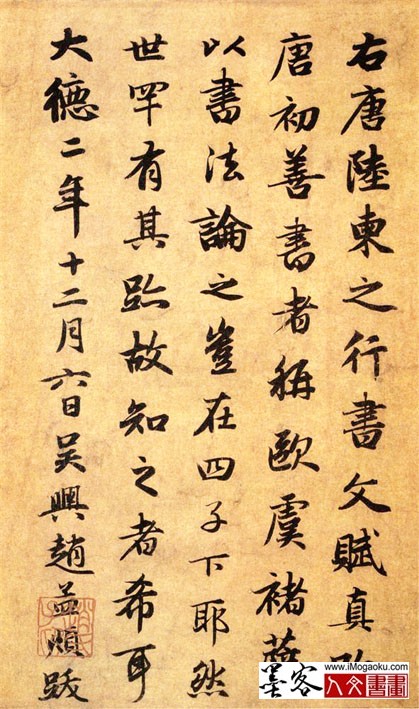 右唐陸柬之行書文賦真
唐初善書者稱歐虞褚薛
以書法論之豈在四子下耶然
世罕有其跡故知之者希耳
大德二年十二月六日吳興趙孟頫跋
墨客
www.iMogaoku.com
人文書畫